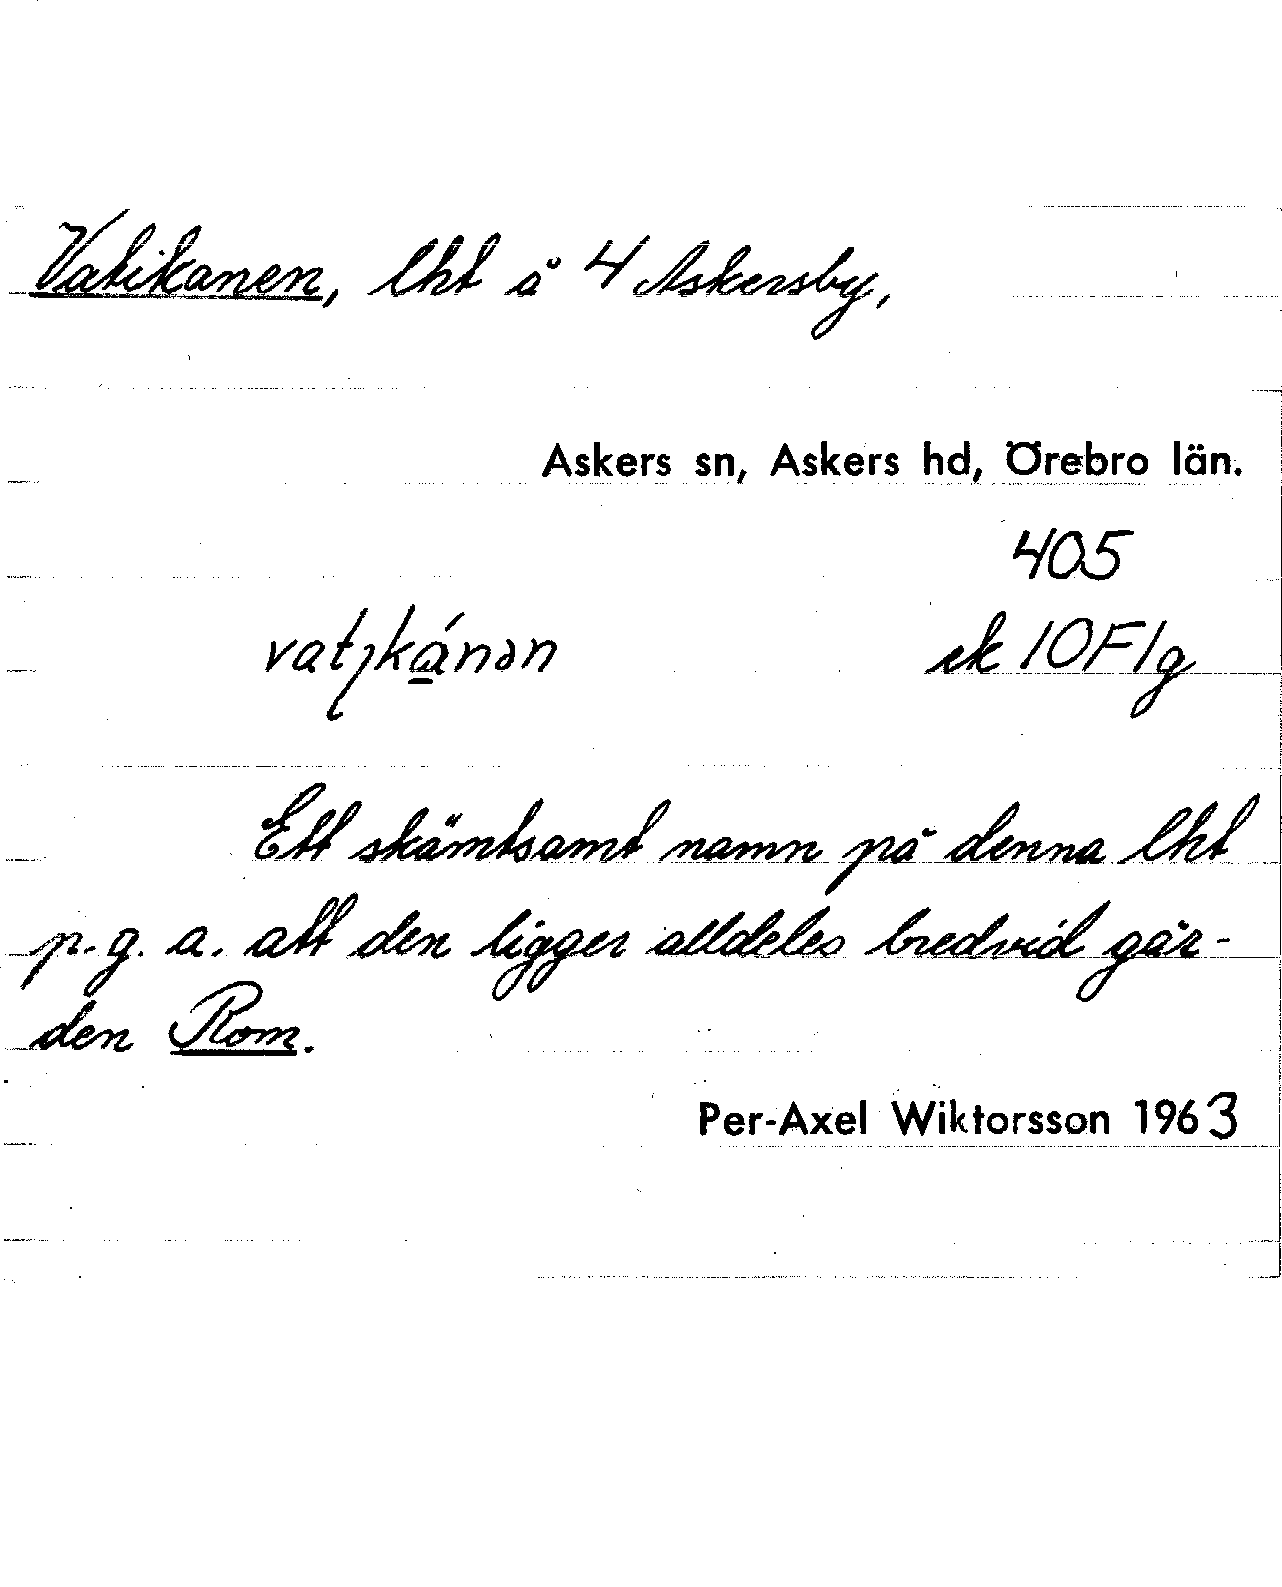 Vatikanen, lht å 4 Askersby,
Askers sn, Askers hd, Örebro län.
405
vatıkánən ek 10F1g
Ett skämtsamt namn på denna lht
p.g.a. att den ligger alldeles bredvid går-
den Rom.
Per-Axel Wiktorsson 1963